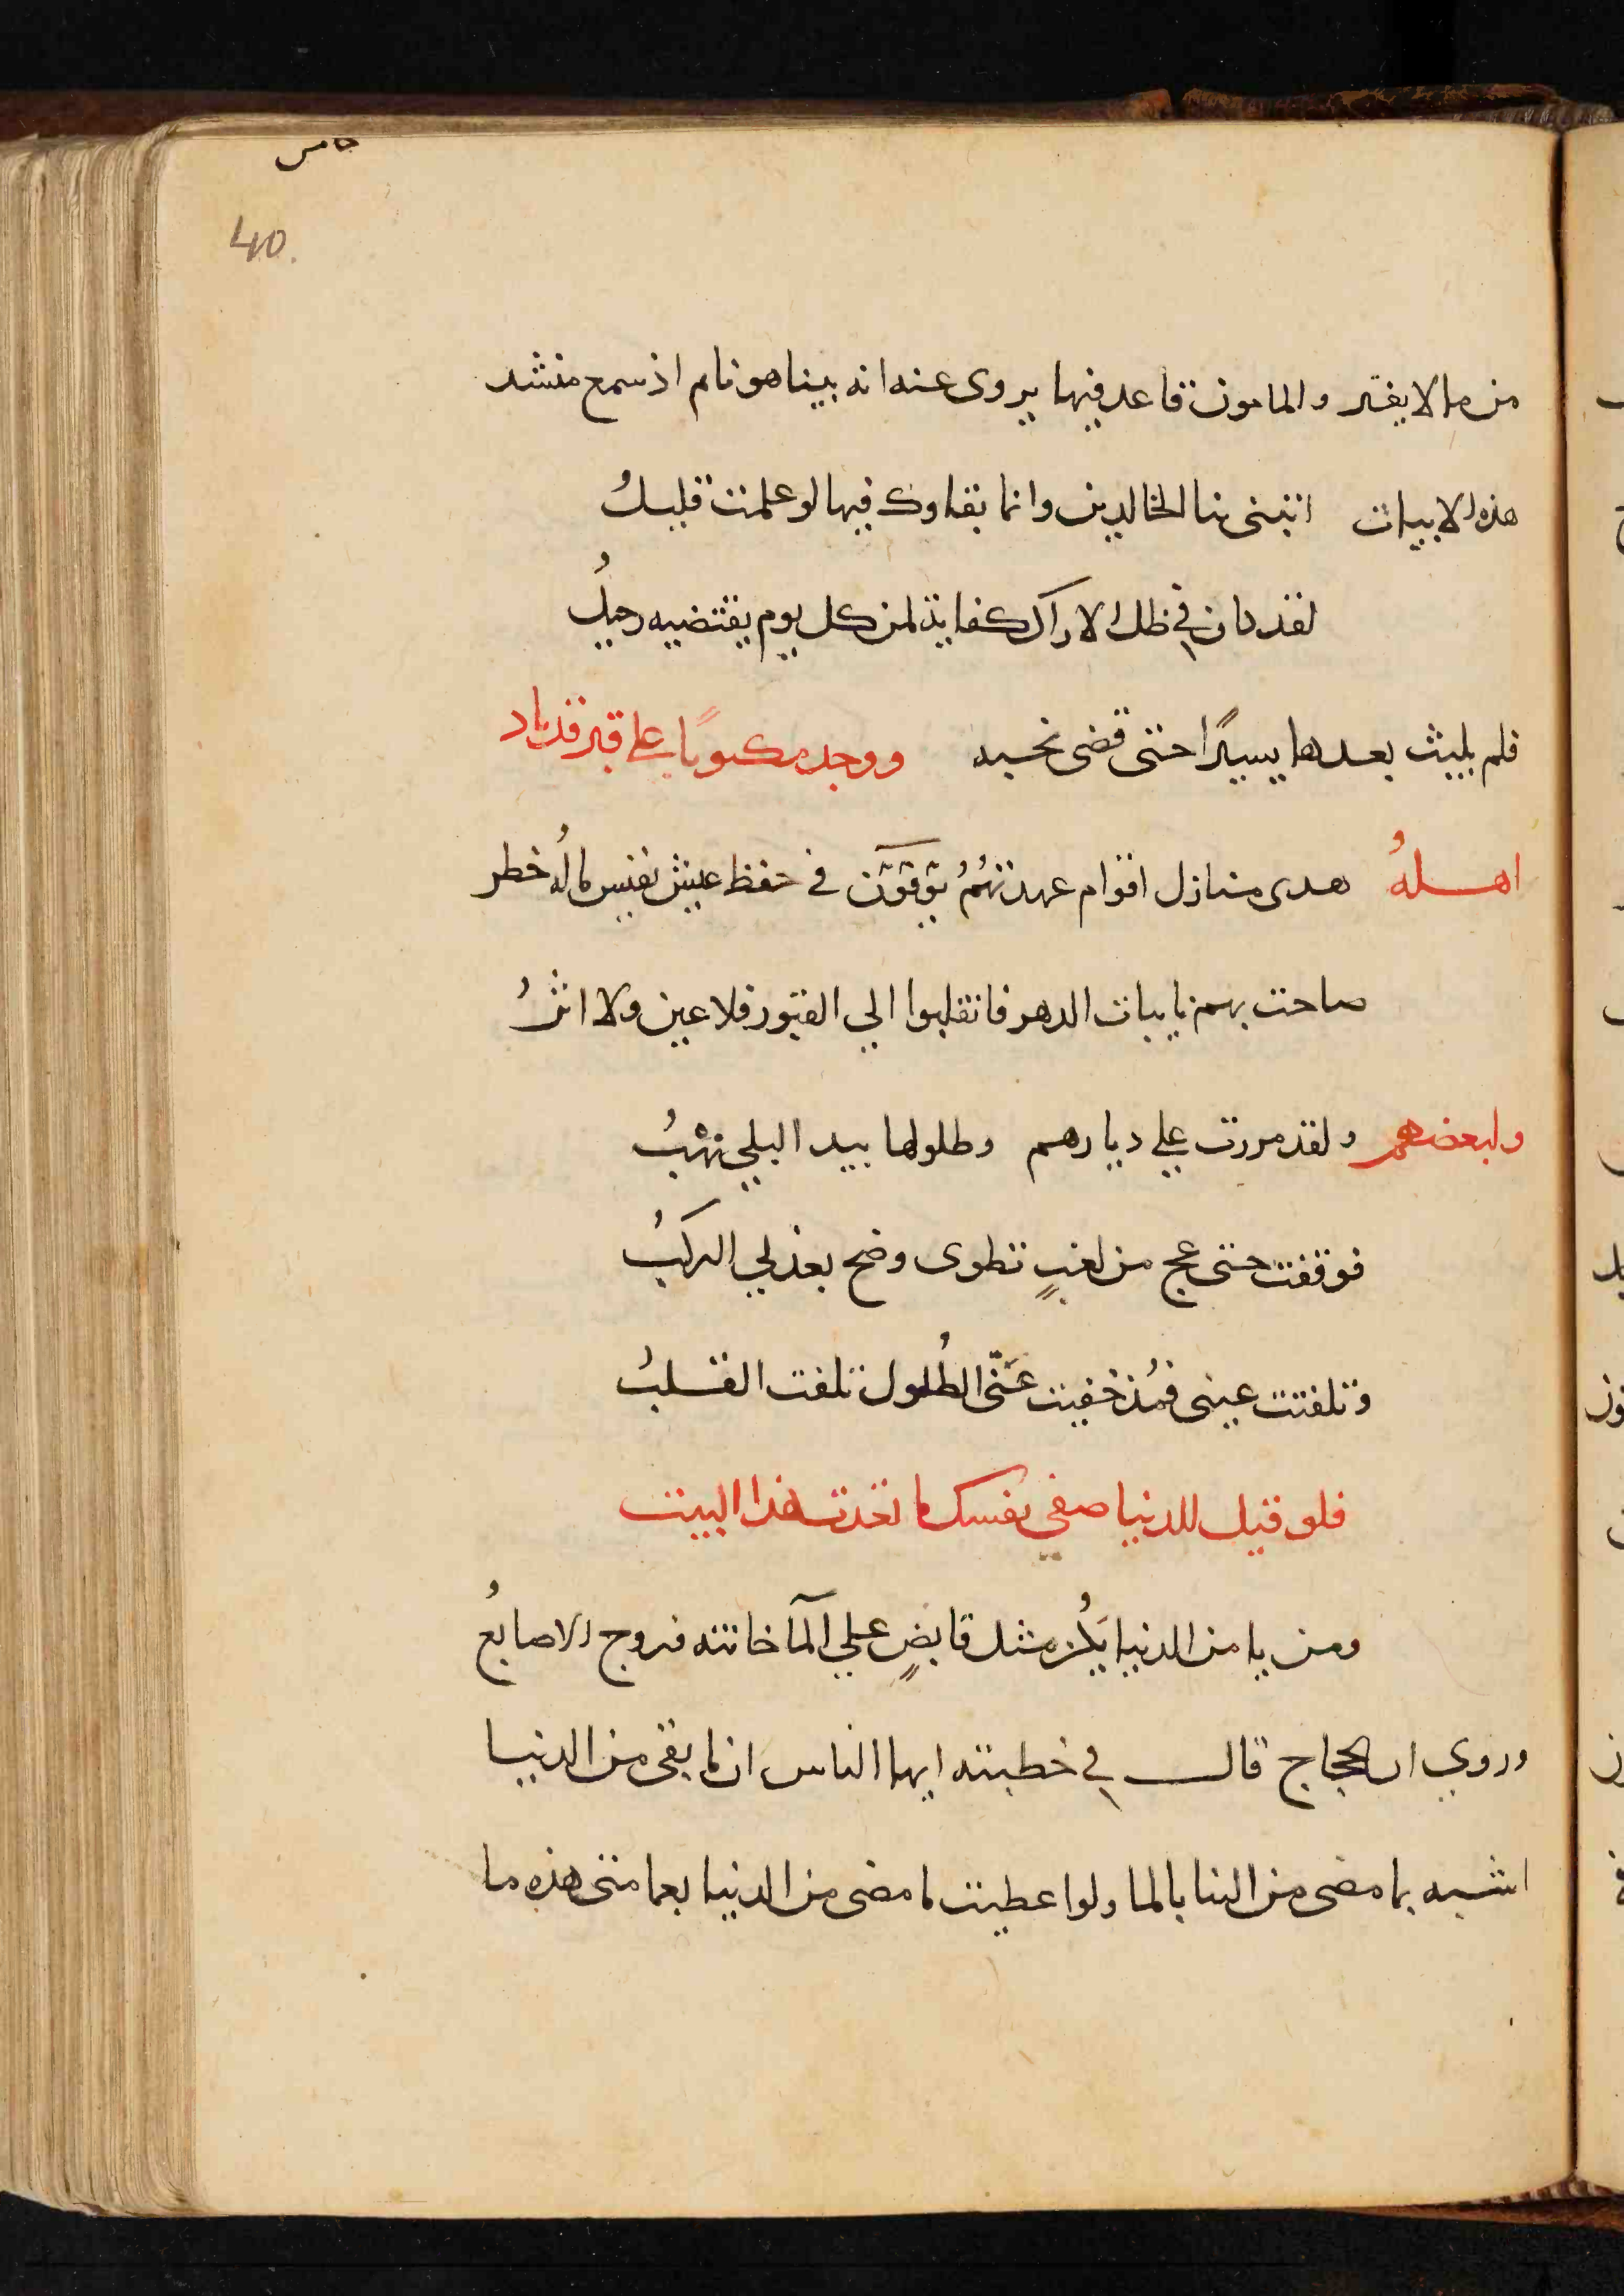 خامس
40.
من ما لا يفتر والمامون قاعد فيها يروى عنه انه بينا هو نام اذ سمع منشد
هذه الابيات اتبنى بنا الخالدين وانما بقاوك فيها لو علمت قليلُ
لقد كان في ظل الاراك كفاية لمن كل يوم يقتضيه رحيلُ
فلم يلبث بعدها يسيرًا حتى قضى نحبه ووجد مكتوبًا على قبر قد باد
اهلهُ هدى منازل اقوام عهدتهُمُ يُوَفّوَن في حفظ عيش نفيس مالَه خطر
صاحت بهم نايبات الدهر فانقلبوا الي القبور فلا عين ولا اثرُ
ولبعضهم ولقد مررت علي ديارهم وطلولها بيد البلي نهْبُ
فوقفت حتى عج من لغبٍ نضوى وضج بعذلي الركَبُ
وتلفتت عينى فمُذ خفيت عَنّى الطُلول تلفت القلبُ
فلو قيل للدنيا صفي نفسك ما تعدت هذا البيت
ومن يامن الدنيا يَكُن مثل قابضٍ علي المآ خانته فروج الاصابعُ
وروي ان الحجاج قال في خطبته ايها الناس ان ما بقى من الدنيا
اشبه بما مضى من الما بالما ولو اعطيت ما مضى من الدنيا بعمامتى هذه ما